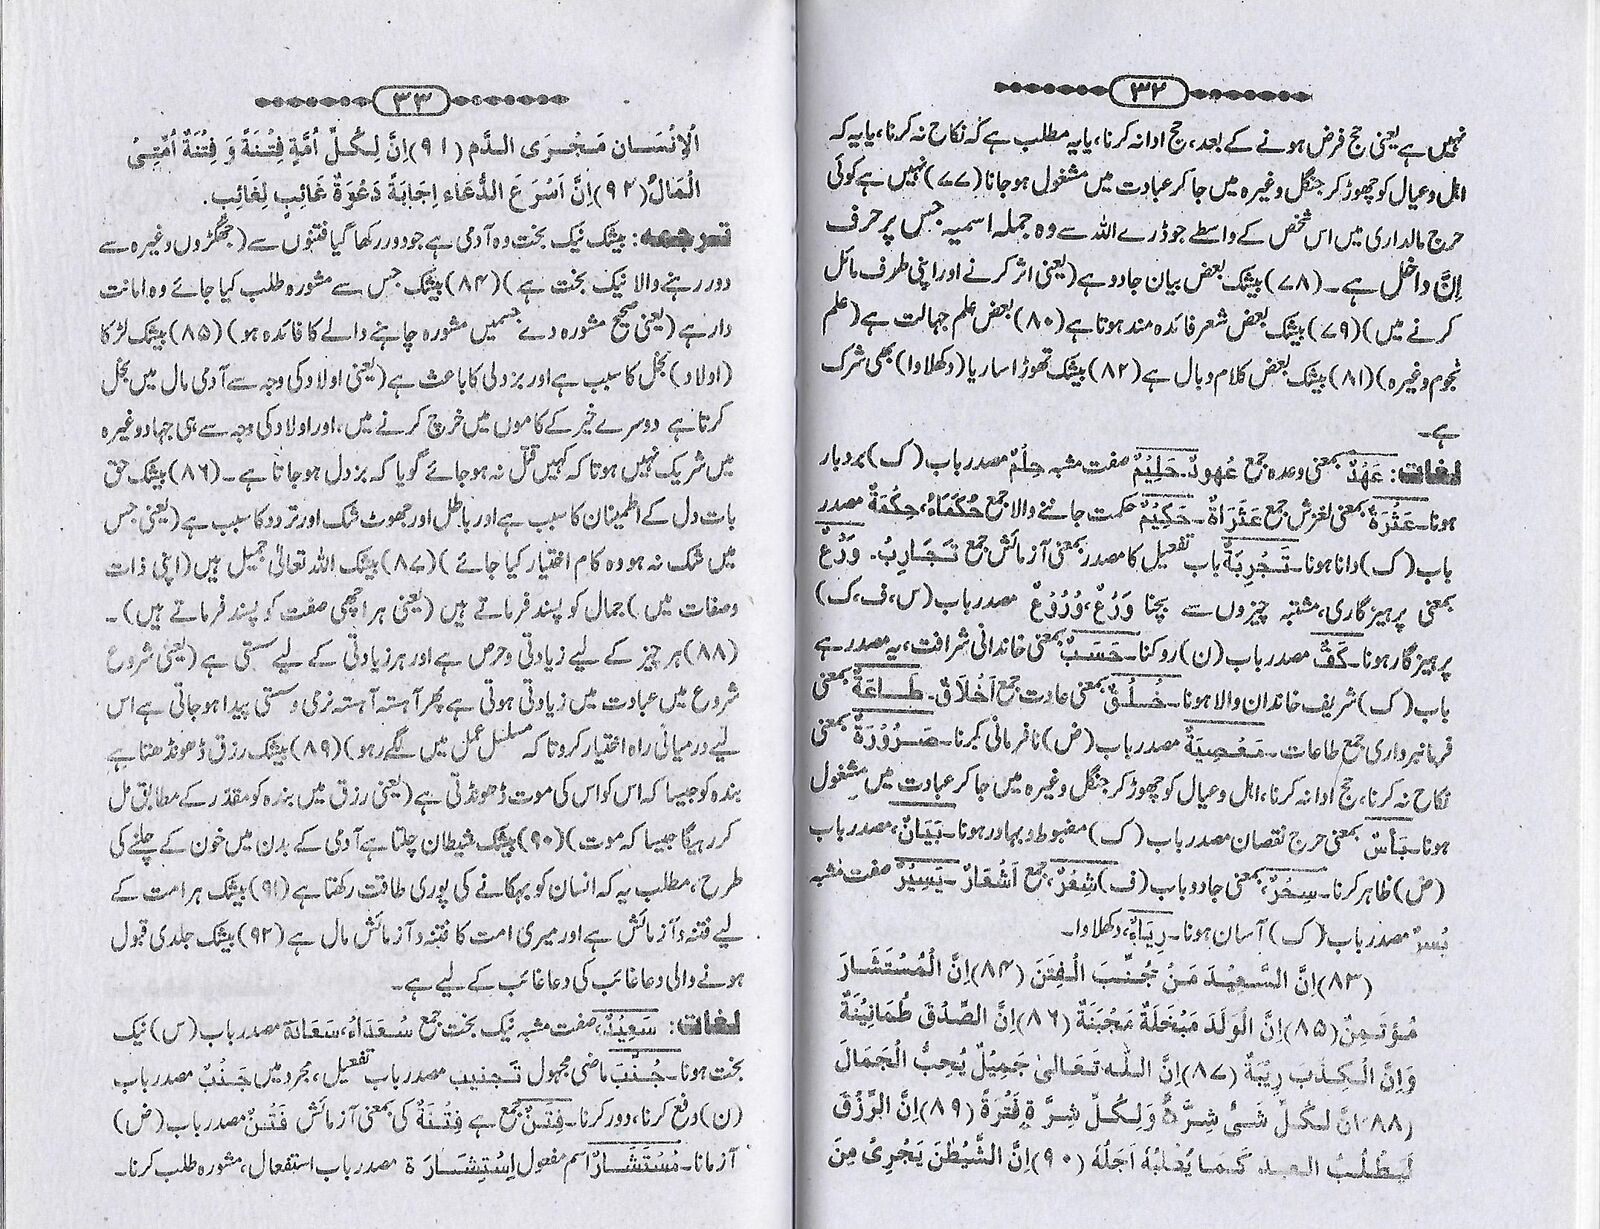 ۳۲
نہیں ہے یعنی حج فرض ہونے کے بعد، حج ادا نہ کرنا، یا یہ مطلب ہے کہ نکاح نہ کرنا، یا یہ کہ
اہل و عیال کو چھوڑ کر جنگل وغیرہ میں جا کر عبادت میں مشغول ہو جانا (۷۷) نہیں ہے کوئی
حرج مالداری میں اس شخص کے واسطے جو ڈرے اللہ سے وہ جملہ اسمیہ جس پر حرف
اِنَّ داخل ہے۔ (۷۸) بیشک بعض بیان جادو ہے (یعنی اثر کرنے اور اپنی طرف مائل
کرنے میں) (۷۹) بیشک بعض شعر فائدہ مند ہوتا ہے (۸۰) بعض علم جہالت ہے (علم
نجوم وغیرہ) (۸۱) بیشک بعض کلام وبال ہے (۸۲) بیشک تھوڑا سا ریا (دکھلاوا) بھی شرک
ہے۔
لغات: عَهْدٌ بمعنی وعدہ جمع عُهودٌ۔ حَلِيْمٌ صفت مشبہ حِلْمٌ مصدر باب (ک) بردبار
ہونا۔ عَثْرَةٌ بمعنی لغزش جمع عَثَرَاةٌ۔ حَكِيْمٌ حکمت جاننے والا جمع حُكَمَاءُ، حِكْمَةٌ مصدر
باب (ک) دانا ہونا۔ تَجْرِبَةٌ باب تفعیل کا مصدر بمعنی آزمائش جمع تَجَارِبُ۔ وَرْعٌ
بمعنی پرہیزگاری، مشتبہ چیزوں سے بچنا وَرْعٌ، وُرُوْعٌ مصدر باب (س، ف، ک)
پرہیزگار ہونا۔ كَفٌّ مصدر باب (ن) روکنا۔ حَسَبٌ بمعنی خاندانی شرافت، یہ مصدر ہے
باب (ک) شریف خاندان والا ہونا۔ خُلُقٌ بمعنی عادت جمع اَخْلَاقٌ۔ طَاعَةٌ بمعنی
فرمانبرداری جمع طاعات۔ مَعْصِيَةٌ مصدر باب (ض) نافرمانی کرنا۔ صَرُوْرَةٌ بمعنی
نکاح نہ کرنا، حج ادا نہ کرنا، اہل و عیال کو چھوڑ کر جنگل وغیرہ میں جا کر عبادت میں مشغول
ہونا۔ بَأْسٌ بمعنی حرج نقصان مصدر باب (ک) مضبوط و بہادر ہونا۔ بَيَانٌ، مصدر باب
(ض) ظاہر کرنا۔ سِحْرٌ، بمعنی جادو باب (ف) شِعْرٌ، جمع اَشْعَارٌ۔ يَسِيْرٌ صفت مشبہ
يُسْرٌ مصدر باب (ک) آسان ہونا۔ رِيَاءٌ، دکھلاوا۔
(۸۳) اِنَّ السَّعِيْدَ مَنْ جُنِّبَ الْفِتَنَ (۸۴) اِنَّ الْمُسْتَشَارَ
مُؤْتَمِنٌ (۸۵) اِنَّ الْوَلَدَ مَبْخَلَةٌ مَجْبَنَةٌ (۸۶) اِنَّ الصِّدْقَ طُمَانِيْنَةٌ
وَاِنَّ الْكَذِبَ رِيْبَةٌ (۸۷) اِنَّ اللّٰهَ تَعَالٰى جَمِيْلٌ يُحِبُّ الْجَمَالَ
(۸۸) اِنَّ لِكُلِّ شَىْءٍ شِرَّةً وَلِكُلِّ شِرَّةٍ فَتْرَةً (۸۹) اِنَّ الرِّزْقَ
لَيَطْلُبُ العبد كَمَا يَطْلُبُهٗ اَجَلُهٗ (۹۰) اِنَّ الشَّيْطٰنَ يَجْرِىْ مِنَ
۳۳
الْاِنْسَانِ مَجْرَى الدَّمِ (۹۱) اِنَّ لِكُلِّ اُمَّةٍ فِتْنَةً وَ فِتْنَةُ اُمَّتِىْ
الْمَالُ (۹۲) اِنَّ اَسْرَعَ الدُّعَاءِ اِجَابَةً دَعْوَةُ غَائِبٍ لِغَائِبٍ۔
ترجمہ: بیشک نیک بخت وہ آدمی ہے جو دور رکھا گیا فتنوں سے (جھگڑوں وغیرہ سے
دور رہنے والا نیک بخت ہے) (۸۴) بیشک جس سے مشورہ طلب کیا جائے وہ امانت
دار ہے (یعنی صحیح مشورہ دے جسمیں مشورہ چاہنے والے کا فائدہ ہو) (۸۵) بیشک لڑکا
(اولاد) بخل کا سبب ہے اور بزدلی کا باعث ہے (یعنی اولاد کی وجہ سے آدمی مال میں بخل
کرتا ہے دوسرے خیر کے کاموں میں خرچ کرنے میں، اور اولاد کی وجہ سے ہی جہاد وغیرہ
میں شریک نہیں ہوتا کہ کہیں قتل نہ ہو جائے گویا کہ بزدل ہو جاتا ہے۔ (۸۶) بیشک حق
بات دل کے اطمینان کا سبب ہے اور باطل اور جھوٹ شک اور تردد کا سبب ہے (یعنی جس
میں شک نہ ہو وہ کام اختیار کیا جائے) (۸۷) بیشک اللہ تعالیٰ جمیل ہیں (اپنی ذات
وصفات میں) جمال کو پسند فرماتے ہیں (یعنی ہر اچھی صفت کو پسند فرماتے ہیں)۔
(۸۸) ہر چیز کے لیے زیادتی و حرص ہے اور ہر زیادتی کے لیے سستی ہے (یعنی شروع
شروع میں عبادت میں زیادتی ہوتی ہے پھر آہستہ آہستہ نرمی و سستی پیدا ہو جاتی ہے اس
لیے درمیانی راہ اختیار کرو تا کہ مسلسل عمل میں لگے رہو) (۸۹) بیشک رزق ڈھونڈھتا ہے
بندہ کو جیسا کہ اس کو اس کی موت ڈھونڈتی ہے (یعنی رزق میں بندہ کو مقدر کے مطابق مل
کر رہیگا جیسا کہ موت) (۹۰) بیشک شیطان چلتا ہے آدمی کے بدن میں خون کے چلنے کی
طرح، مطلب یہ کہ انسان کو بہکانے کی پوری طاقت رکھتا ہے (۹۱) بیشک ہر امت کے
لیے فتنہ و آزمائش ہے اور میری امت کا فتنہ و آزمائش مال ہے (۹۲) بیشک جلدی قبول
ہونے والی دعا غائب کی دعا غائب کے لیے ہے۔
لغات: سَعِيْدٌ، صفت مشبہ نیک بخت جمع سُعَدَاءُ، سَعَادَة مصدر باب (س) نیک
بخت ہونا۔ جُنِّبَ ماضی مجہول تَجنِيب مصدر باب تفعیل، مجرد میں جَنْبٌ مصدر باب
(ن) دفع کرنا، دور کرنا۔ فِتَنٌ جمع ہے فِتْنَةٌ کی بمعنی آزمائش فَتْنٌ مصدر باب (ض)
آزمانا۔ مُسْتَشَارٌ اسم مفعول اِسْتِشَارَة مصدر باب استفعال، مشورہ طلب کرنا۔